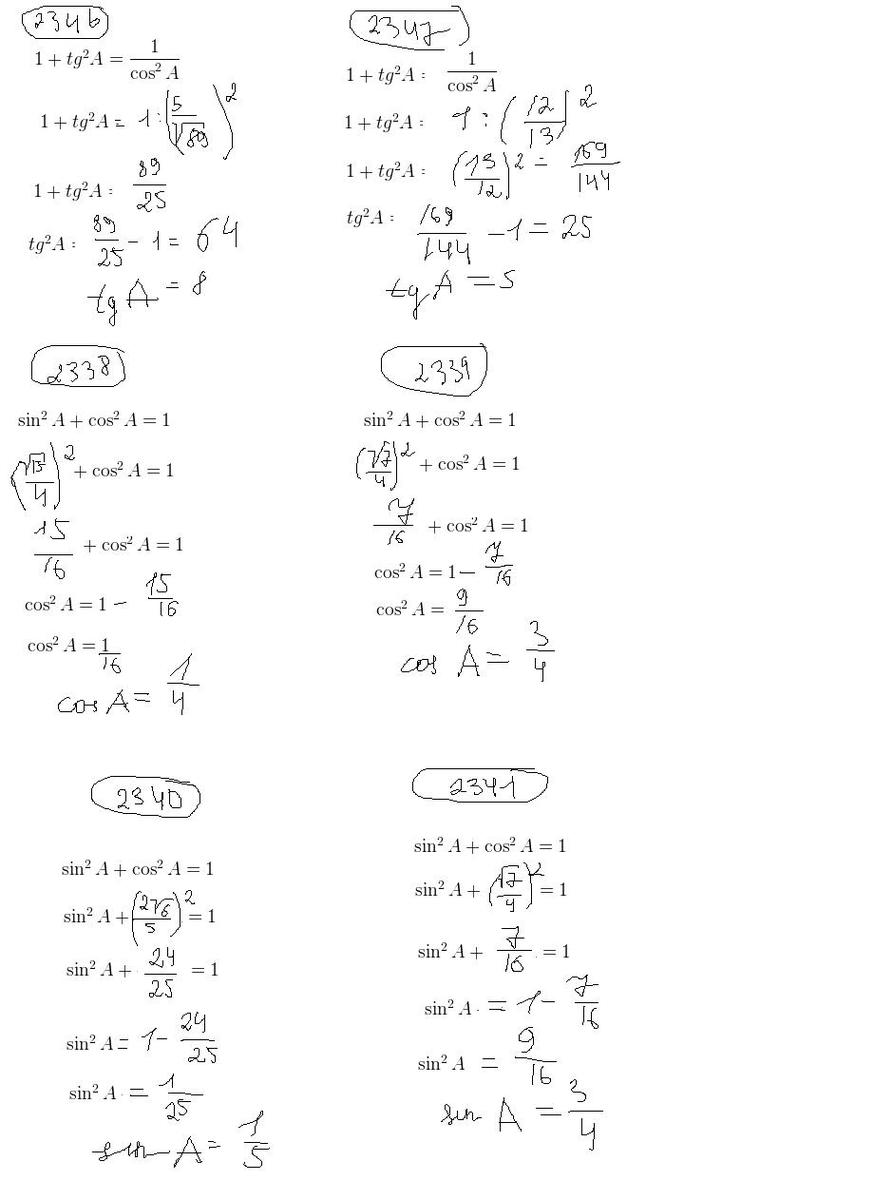 2346
1 + tg²A = 1/cos² A
1 + tg²A = 1:(5/√89)²
1 + tg²A : 89/25
tg²A : 89/25 - 1 = 64
tg A = 8
2347
1 + tg²A : 1/cos² A
1 + tg²A : 1 : (12/13)²
1 + tg²A : (13/12)² = 169/144
tg²A : 169/144 - 1 = 25
tg A = 5
2338
sin² A + cos² A = 1
(√15/4)² + cos² A = 1
15/16 + cos² A = 1
cos² A = 1 - 15/16
cos² A = 1/16
cos A = 1/4
2339
sin² A + cos² A = 1
(√7/4)² + cos² A = 1
7/16 + cos² A = 1
cos² A = 1 - 7/16
cos² A = 9/16
cos A = 3/4
2340
sin² A + cos² A = 1
sin² A + (2√6/5)² = 1
sin² A + 24/25 = 1
sin² A = 1 - 24/25
sin² A = 1/25
sin A = 1/5
2341
sin² A + cos² A = 1
sin² A + (√7/4)² = 1
sin² A + 7/16 = 1
sin² A = 1 - 7/16
sin² A = 9/16
sin A = 3/4